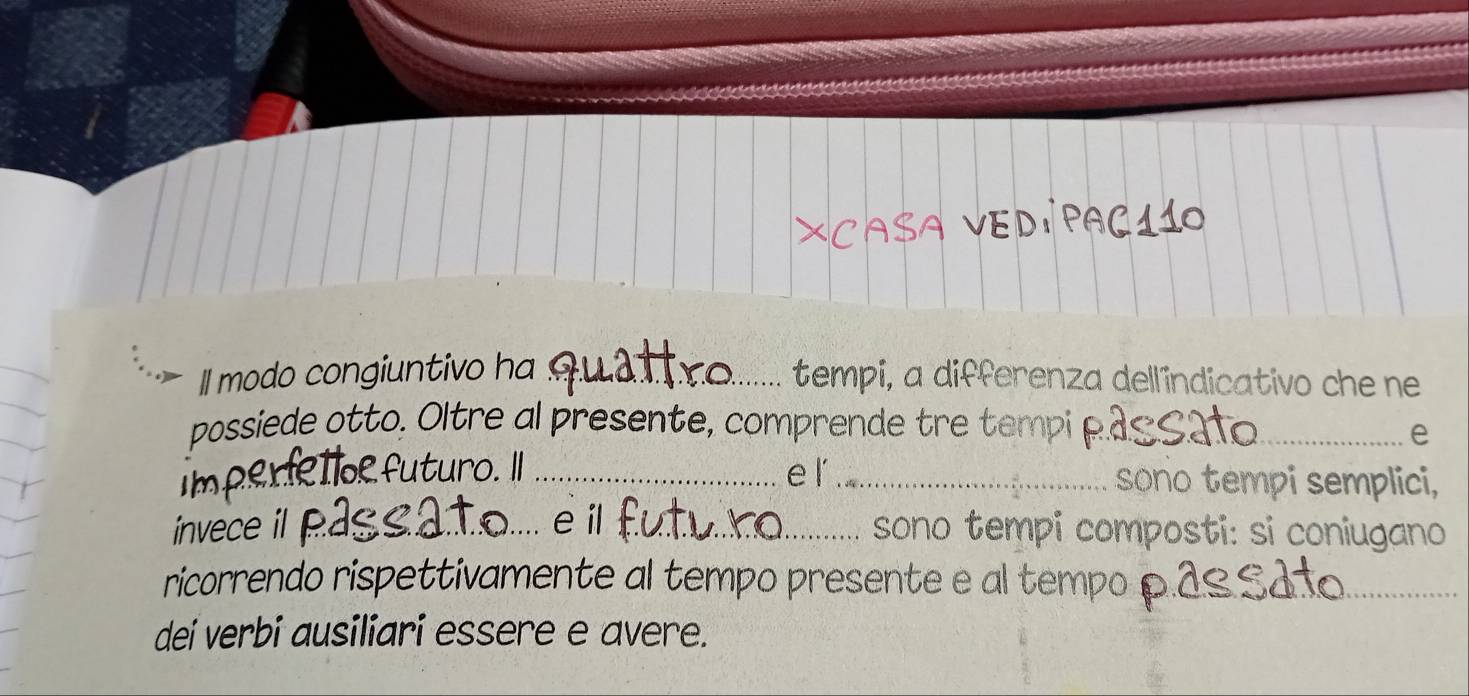 XCASA VEDI PAG 110
Il modo congiuntivo ha quattro...... tempi, a differenza dell'indicativo che ne
possiede otto. Oltre al presente, comprende tre tempi passato.................. e
imperfetto e futuro. Il .............................. e l' .................................. sono tempi semplici,
invece il passato.... e il futuro.......... sono tempi composti: si coniugano
ricorrendo rispettivamente al tempo presente e al tempo passato..............
dei verbi ausiliari essere e avere.